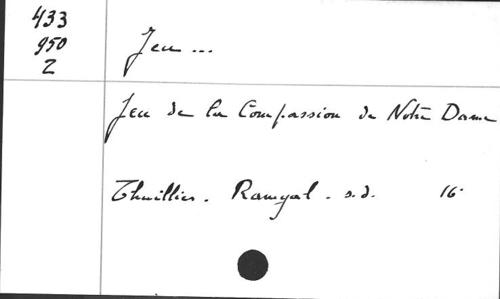 433
950
2
Jeu ...
Jeu de la Compassion de Notre Dame
Thuillier. Ramgal. s.d. 16°